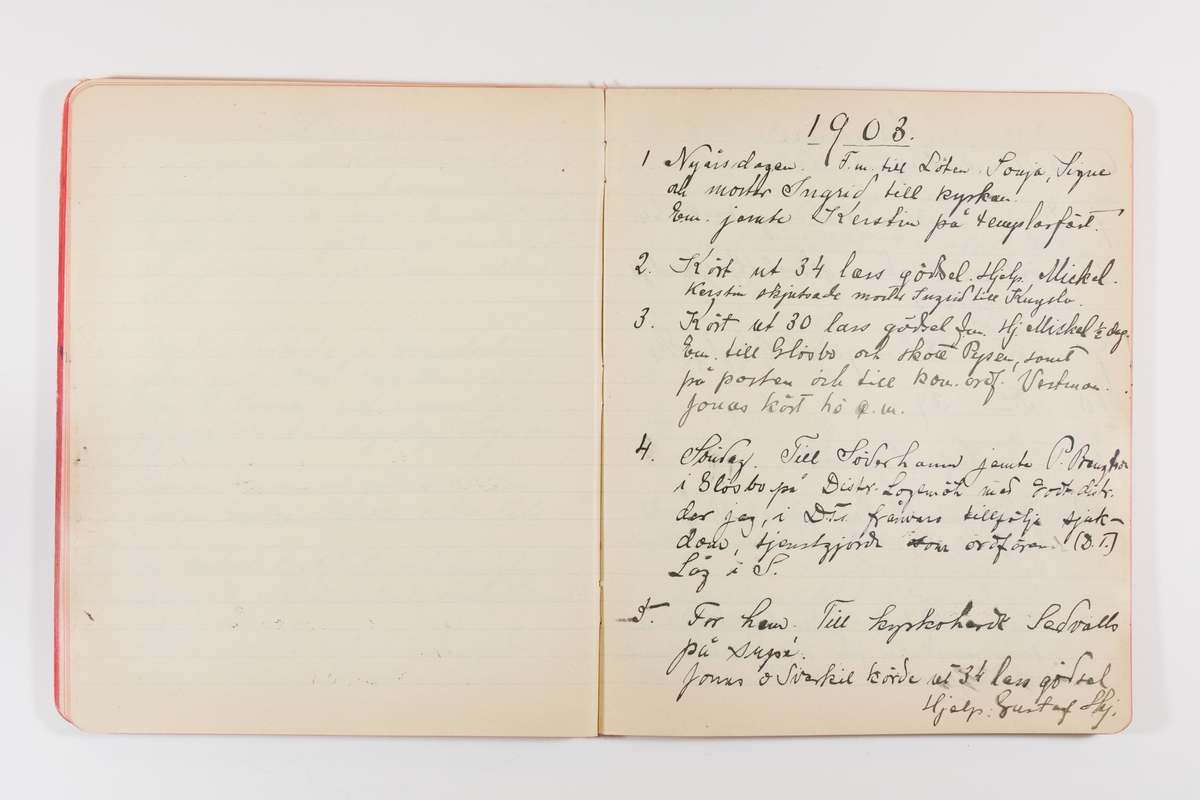 1903.
1 Nyårsdagen. F.m. till Löten. Sonja, Signe
och moster Ingrid till kyrkan.
Em. jemte Kerstin på templarfäst.
2. Kört ut 34 lass gödsel. Hjelp. Mickel.
Kerstin skjutsade moster Ingrid till Knyslo.
3. Kört ut 30 lass gödsel Fm. Hj. Mickel ½ dag.
Em. till Glösbo och sköt Pysen, samt
på posten och till kom. ordf. Vestman.
Jonas kört hö e.m.
4. Söndag. Till Söderhamn jemte P.
i Glösbo på Distr. Logemöte med Godt. distr.
der jag, i D.Ts. frånvaro tillfölje sjuk-
dom, tjenstgjorde som ordföran (D.T.)
Låg i S.
5. For hem. Till kyrkoherde Sedvalls
på supé.
Jonas o Sverkil körde ut 34 lass gödsel
Hjelp: Gustaf Hj.